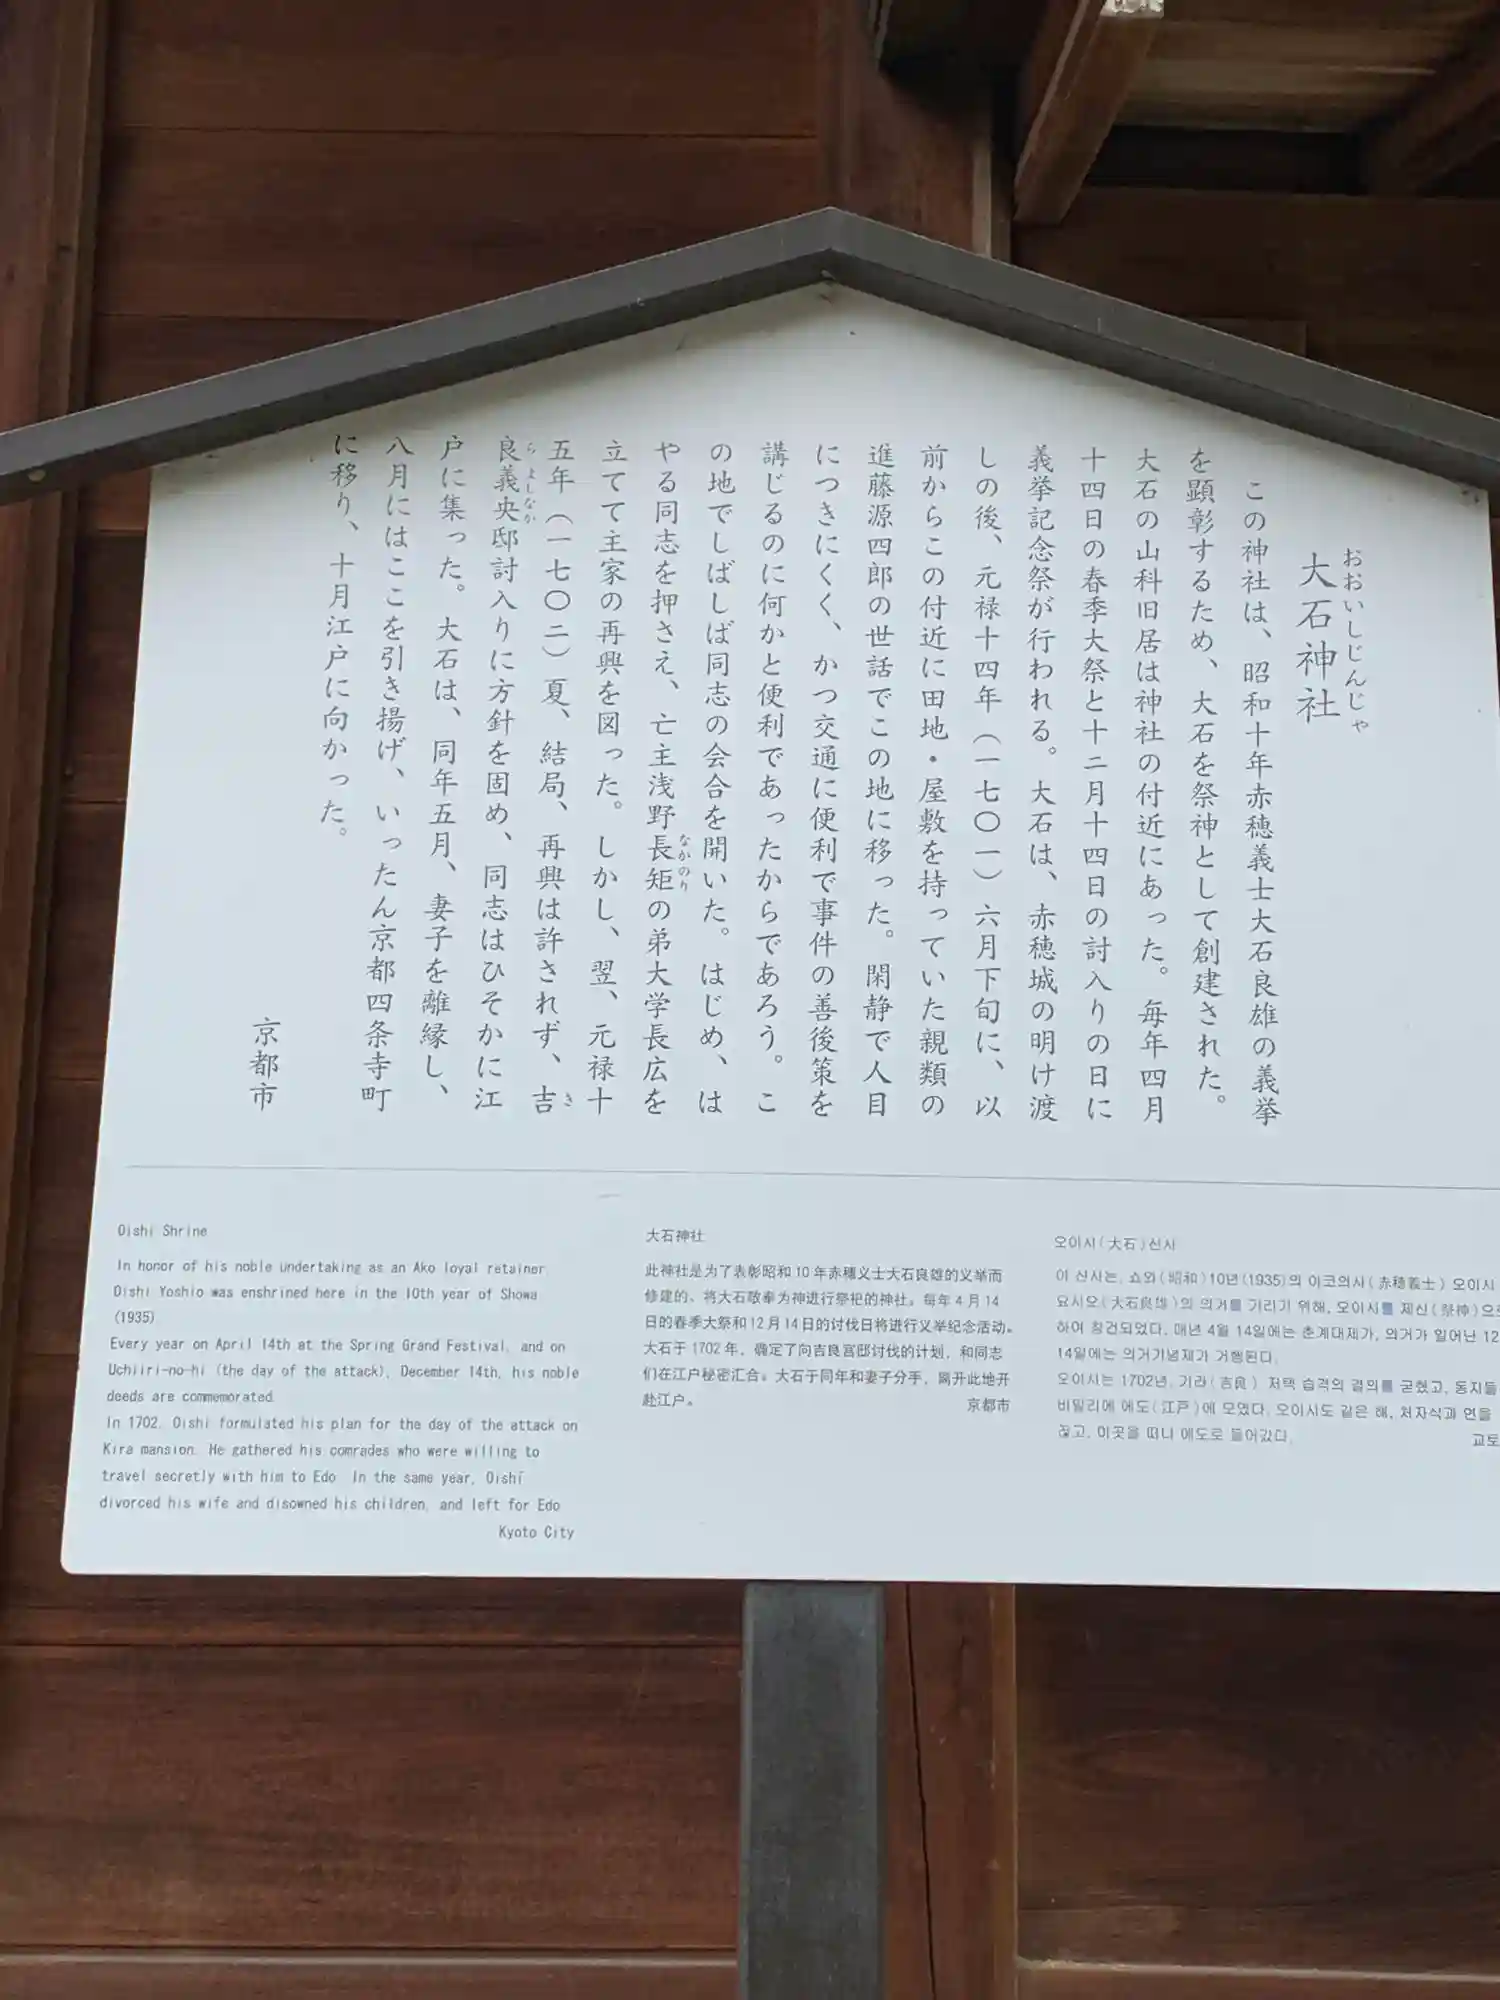 おおいしじんじゃ
大石神社
この神社は、昭和十年赤穂義士大石良雄の義挙
を顕彰するため、大石を祭神として創建された。
大石の山科旧居は神社の付近にあった。毎年四月
十四日の春季大祭と十二月十四日の討入りの日に
義挙記念祭が行われる。大石は、赤穂城の明け渡
しの後、元禄十四年(一七〇一)六月下旬に、以
前からこの付近に田地・屋敷を持っていた親類の
進藤源四郎の世話でこの地に移った。閑静で人目
につきにくく、かつ交通に便利で事件の善後策を
講じるのに何かと便利であったからであろう。こ
の地でしばしば同志の会合を開いた。はじめ、は
やる同志を押さえ、亡主浅野長矩の弟大学長広を
なかのり
立てて主家の再興を図った。しかし、翌、元禄十
五年(一七〇二)夏、結局、再興は許されず、吉
き
良義央邸討入りに方針を固め、同志はひそかに江
らよしなか
戸に集った。大石は、同年五月、妻子を離縁し、
八月にはここを引き揚げ、いったん京都四条寺町
に移り、十月江戸に向かった。
京都市
Oishi Shrine
In honor of his noble undertaking as an Ako loyal retainer,
Oishi Yoshio was enshrined here in the 10th year of Showa
(1935).
Every year on April 14th at the Spring Grand Festival, and on
Uchiiri-no-hi (the day of the attack), December 14th, his noble
deeds are commemorated.
In 1702, Oishi formulated his plan for the day of the attack on
Kira mansion. He gathered his comrades who were willing to
travel secretly with him to Edo. In the same year, Oishi
divorced his wife and disowned his children, and left for Edo.
Kyoto City
大石神社
此神社是为了表彰昭和10年赤穗义士大石良雄的义举而
修建的、将大石敬奉为神进行祭祀的神社。每年4月14
日的春季大祭和12月14日的讨伐日将进行义举纪念活动。
大石于1702年，确定了向吉良宫邸讨伐的计划，和同志
们在江户秘密汇合。大石于同年和妻子分手，离开此地开
赴江户。
京都市
오이시(大石)신사
이 신사는, 쇼와(昭和)10년(1935)의 아코의사(赤穗義士) 오이시
요시오(大石良雄)의 의거를 기리기 위해, 오이시를 제신(祭神)으로
하여 창건되었다. 매년 4월 14일에는 춘계대제가, 의거가 일어난 12
14일에는 의거기념제가 거행된다.
오이시는 1702년, 기라(吉良) 저택 습격의 결의를 굳혔고, 동지들
비밀리에 에도(江戸)에 모였다. 오이시도 같은 해, 처자식과 연을
끊고, 이곳을 떠나 에도로 들어갔다.
교토